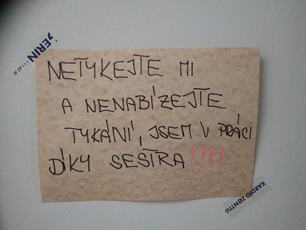 JERIN
NETYKEJTE MI
A NENABÍZEJTE
TYKÁNÍ, JSEM V PRÁCI
DÍKY SESTRA !!!!
KARDIO ZENTIVA